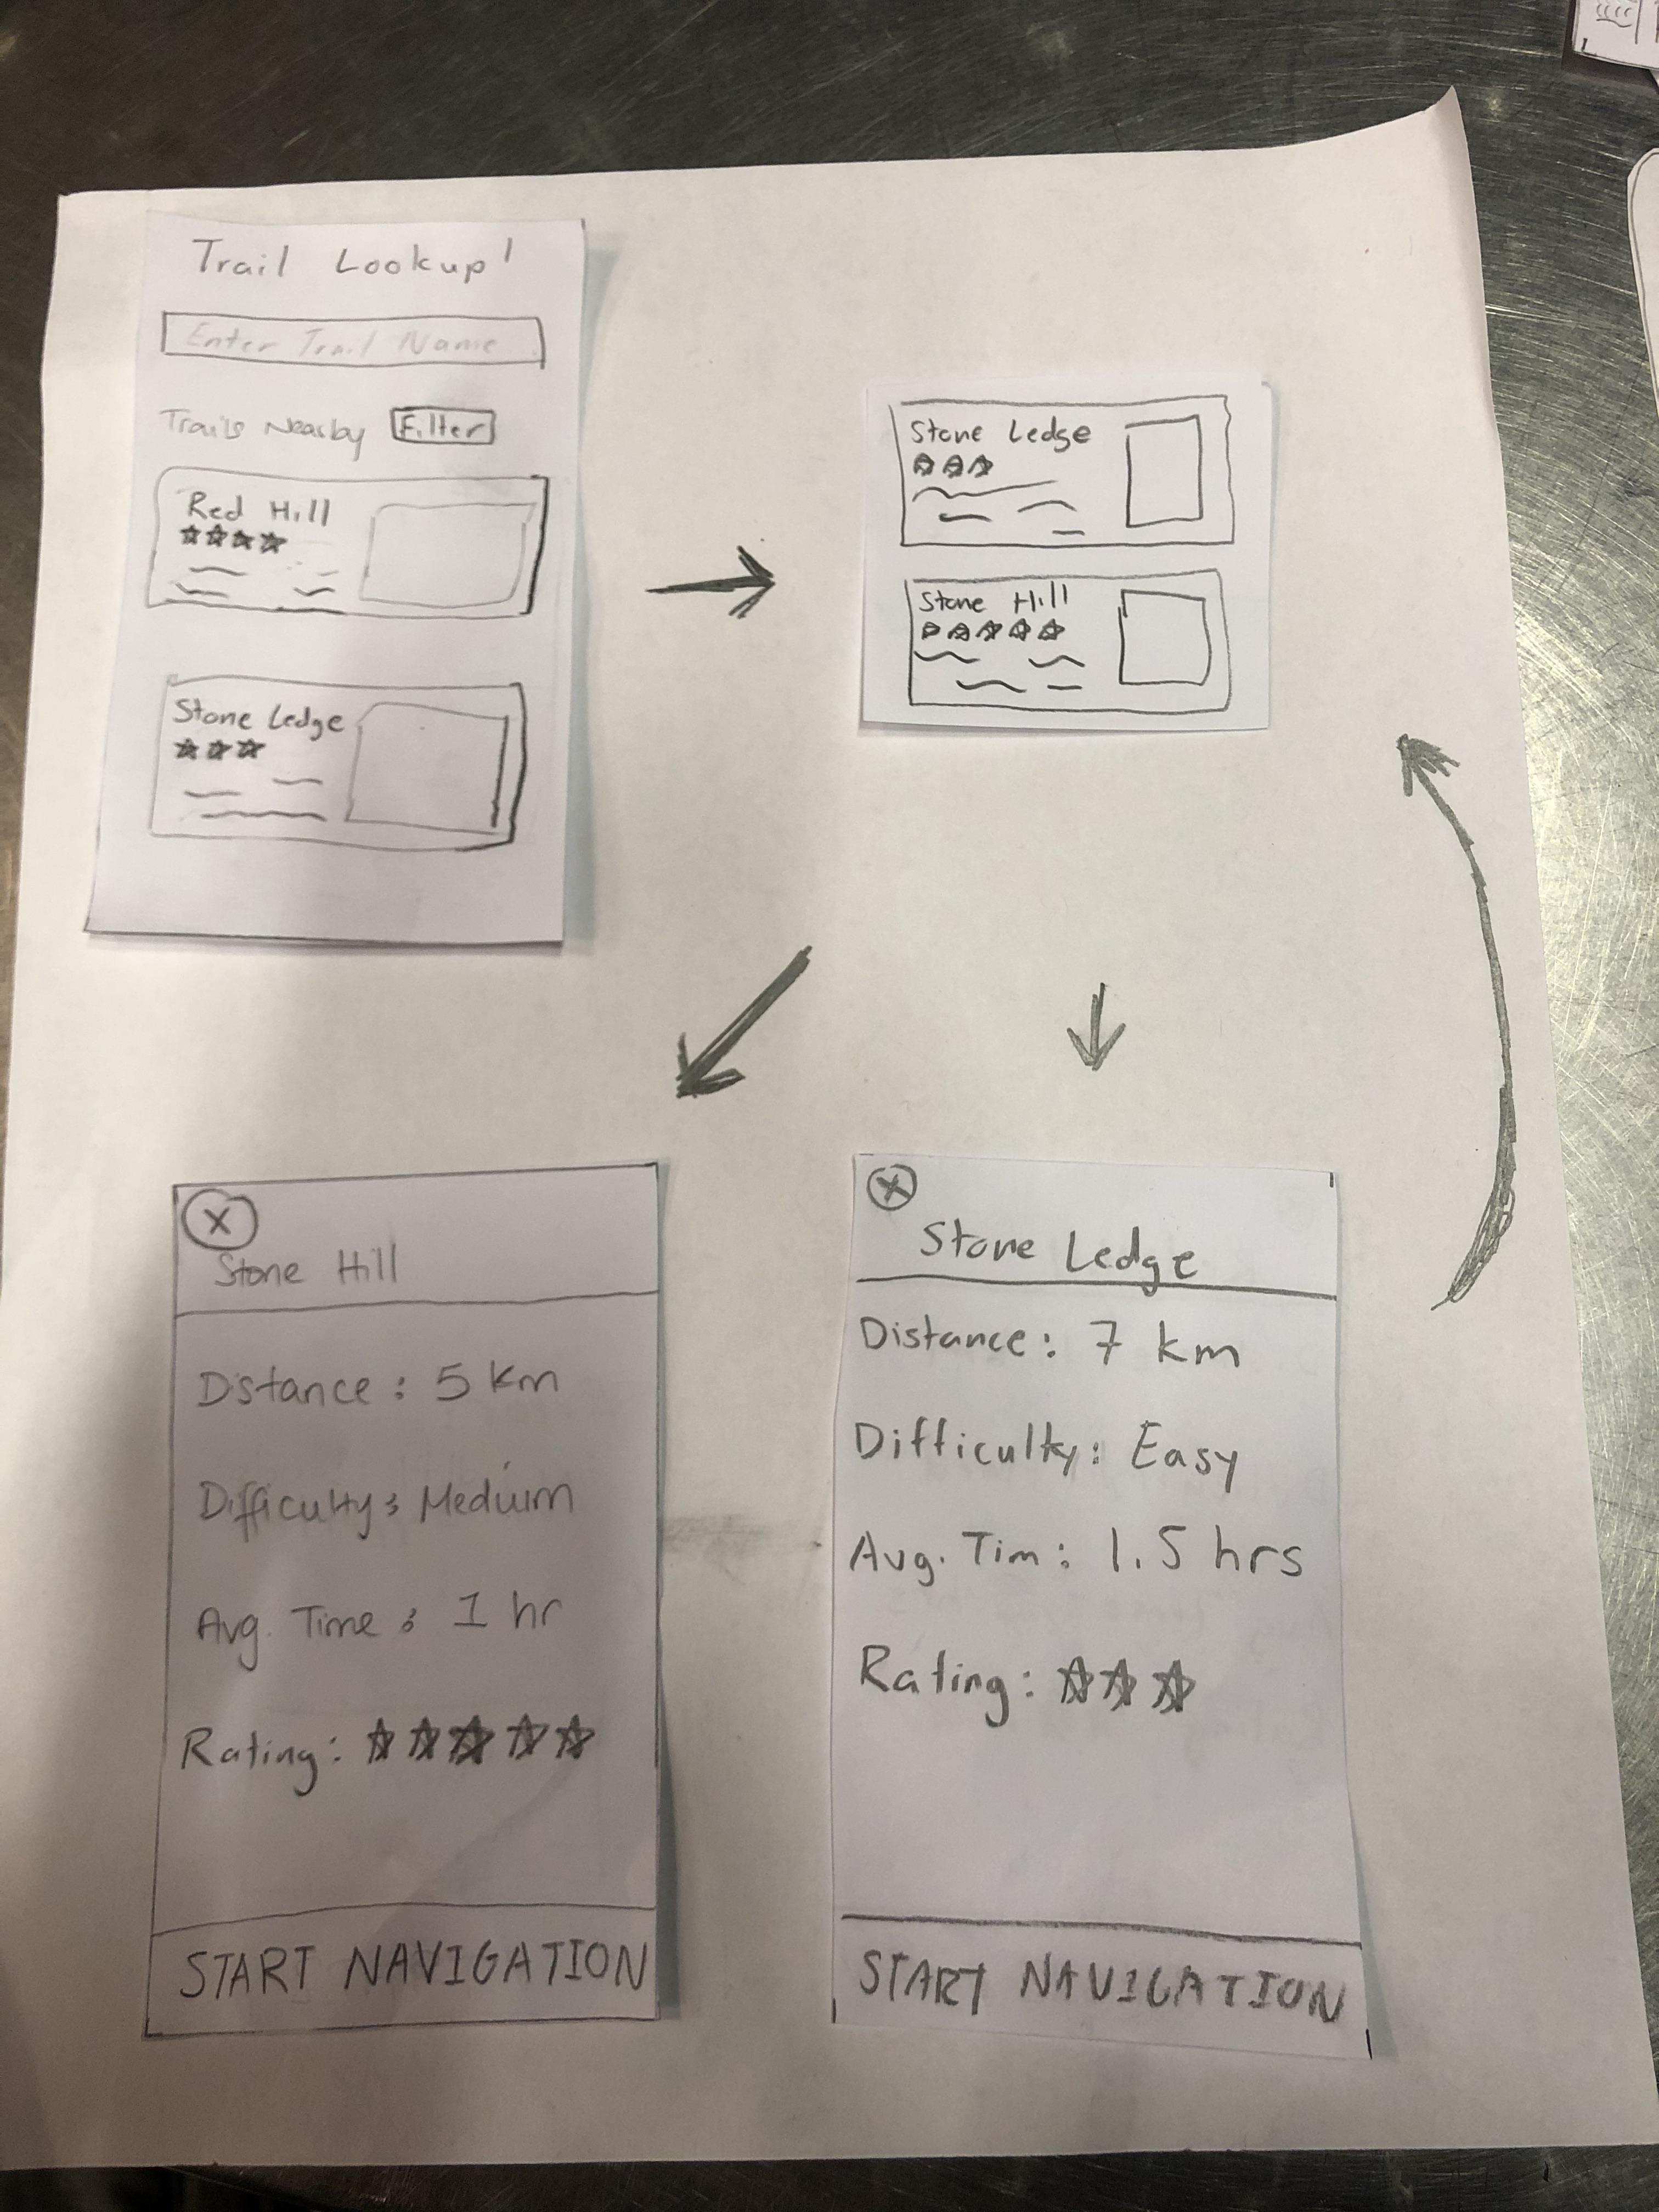 Trail Lookup!
Enter Trail Name
Trails Nearby Filter
Red Hill
Stone Ledge
Stone Ledge
Stone Hill
X
Stone Hill
Distance: 5 km
Difficulty: Medium
Avg. Time: 1 hr
Rating:
START NAVIGATION
X
Stone Ledge
Distance: 7 km
Difficulty: Easy
Avg. Tim: 1.5 hrs
Rating:
START NAVIGATION